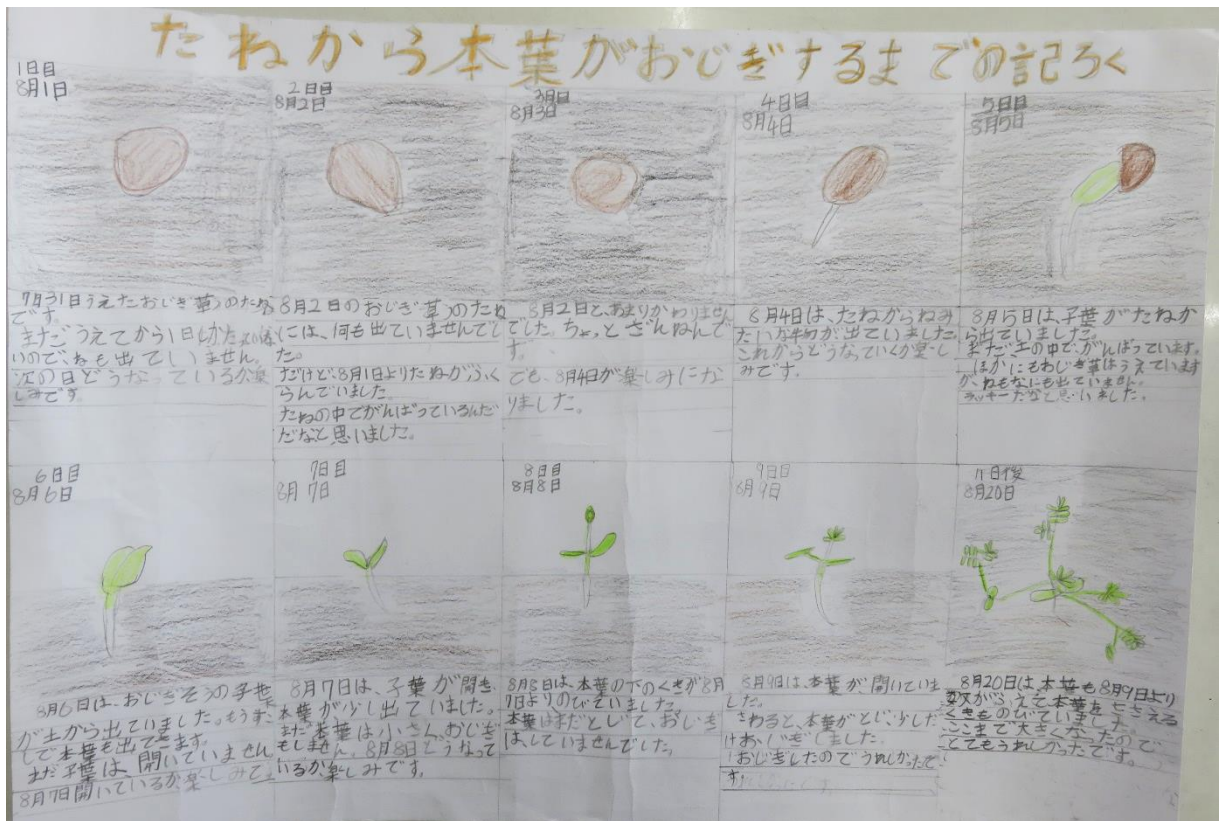 たねから本葉がおじぎするまでの記ろく
1日目
8月1日
7月31日うえたおじぎ草のたね
です。
まだ、うえてから1日しかたって
いないので、ねも出ていません。
次の日どうなっているか楽
しみです。
2日目
8月2日
8月2日のおじぎ草のたね
には、何も出ていませんでし
た。
だけど、8月1日よりたねがふく
らんでいました。
たねの中でがんばっているんだ
だなと思いました。
3日目
8月3日
8月2日と、あまりかわりません
でした。ちょっとざんねんで
す。
でも、8月4日が楽しみにな
りました。
4日目
8月4日
8月4日は、たねからねみ
たいな物が出ていました。
これからどうなっていくか楽し
みです。
5日目
8月5日
8月5日は、子葉がたねか
ら出ていました。
まだ土の中で、がんばっています。
ほかにもおじぎ草はうえています
が、ねもなにも出ていません。
ラッキーだなと思いました。
6日目
8月6日
8月6日は、おじぎそうの子葉
が土から出ていました。もうすこ
しで本葉も出てきます。
まだ子葉は、開いていません
8月7日開いているか楽しみで
7日目
8月7日
8月7日は、子葉が開き、
本葉が少し出ていました。
まだ本葉は小さく、おじぎ
もしません。8月8日どうなって
いるか楽しみです。
8日目
8月8日
8月8日は、本葉の下のくきが8月
7日よりのびていました。
本葉はまだとじて、おじぎ
は、していませんでした。
9日目
8月9日
8月9日は、本葉が開いていま
した。
さわると、本葉がとじ、少しだ
けおじぎしました。
おじぎしたのでうれしかったで
す。
11日後
8月20日
8月20日は、本葉も8月9日より
数がふえて本葉をささえる
くきものびていました。
ここまで大きくなったので、
とてもうれしかったです。